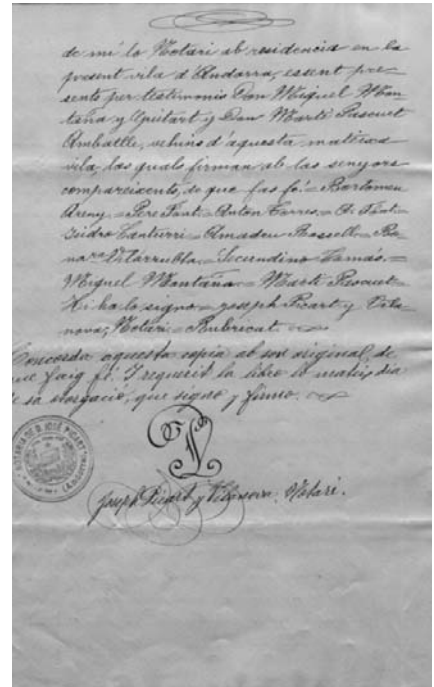 de mí lo Notari ab residencia en la
present vila d'Andorra, essent pre-
sents per testimonis Don Miguel Mon-
taña y Aguilart y Don Martí Pascuet
vehins d'aquesta mateixa
vila, los quals firman ab los senyors
compareixents, de que fas fé.= Bartomeu
Areny.= Pere Font.= Anton Torres.=
Isidro = Amadeu Rossell.= Bo-
nara Vilarrubla.= Secundino Tomás.=
Miguel Montaña.= Martí Pascuet.=
Hi ha lo signo = Joseph Picart y Vila-
nova, Notari.= Rubricat
Concorda aquesta copia ab son original, de
que faig fé. I requerit la libro lo mateix dia
de sa otorgació, que signo y firmo.
NOTARIA DE D. JOSÉ PICART
Joseph Picart y Vilanova, Notari.